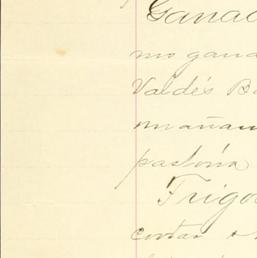 Ganad
mo gana
Valdés B
mañan
pastoría
Trigo
cortar